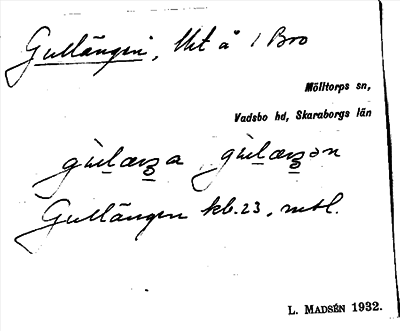 Gullängen, Ut å 1 Bro
Mölltorps sn,
Vadsbo hd, Skaraborgs län
Gullängen kb. 23, mtl.
L. MADSÉN 1932.